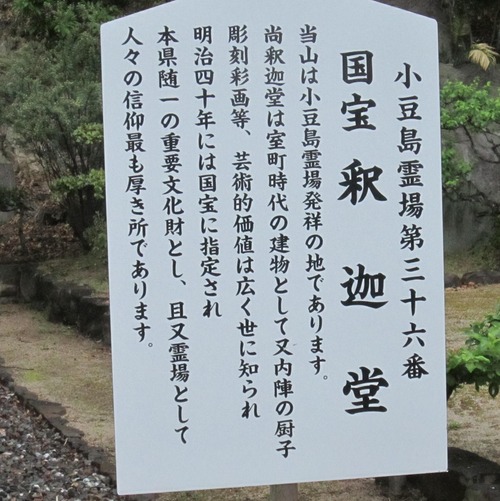 小豆島霊場第三十六番
国宝釈迦堂
当山は小豆島霊場発祥の地であります。
尚釈迦堂は室町時代の建物として又内陣の厨子
彫刻彩画等、芸術的価値は広く世に知られ
明治四十年には国宝に指定され
本県随一の重要文化財とし、且又霊場として
人々の信仰最も厚き所であります。